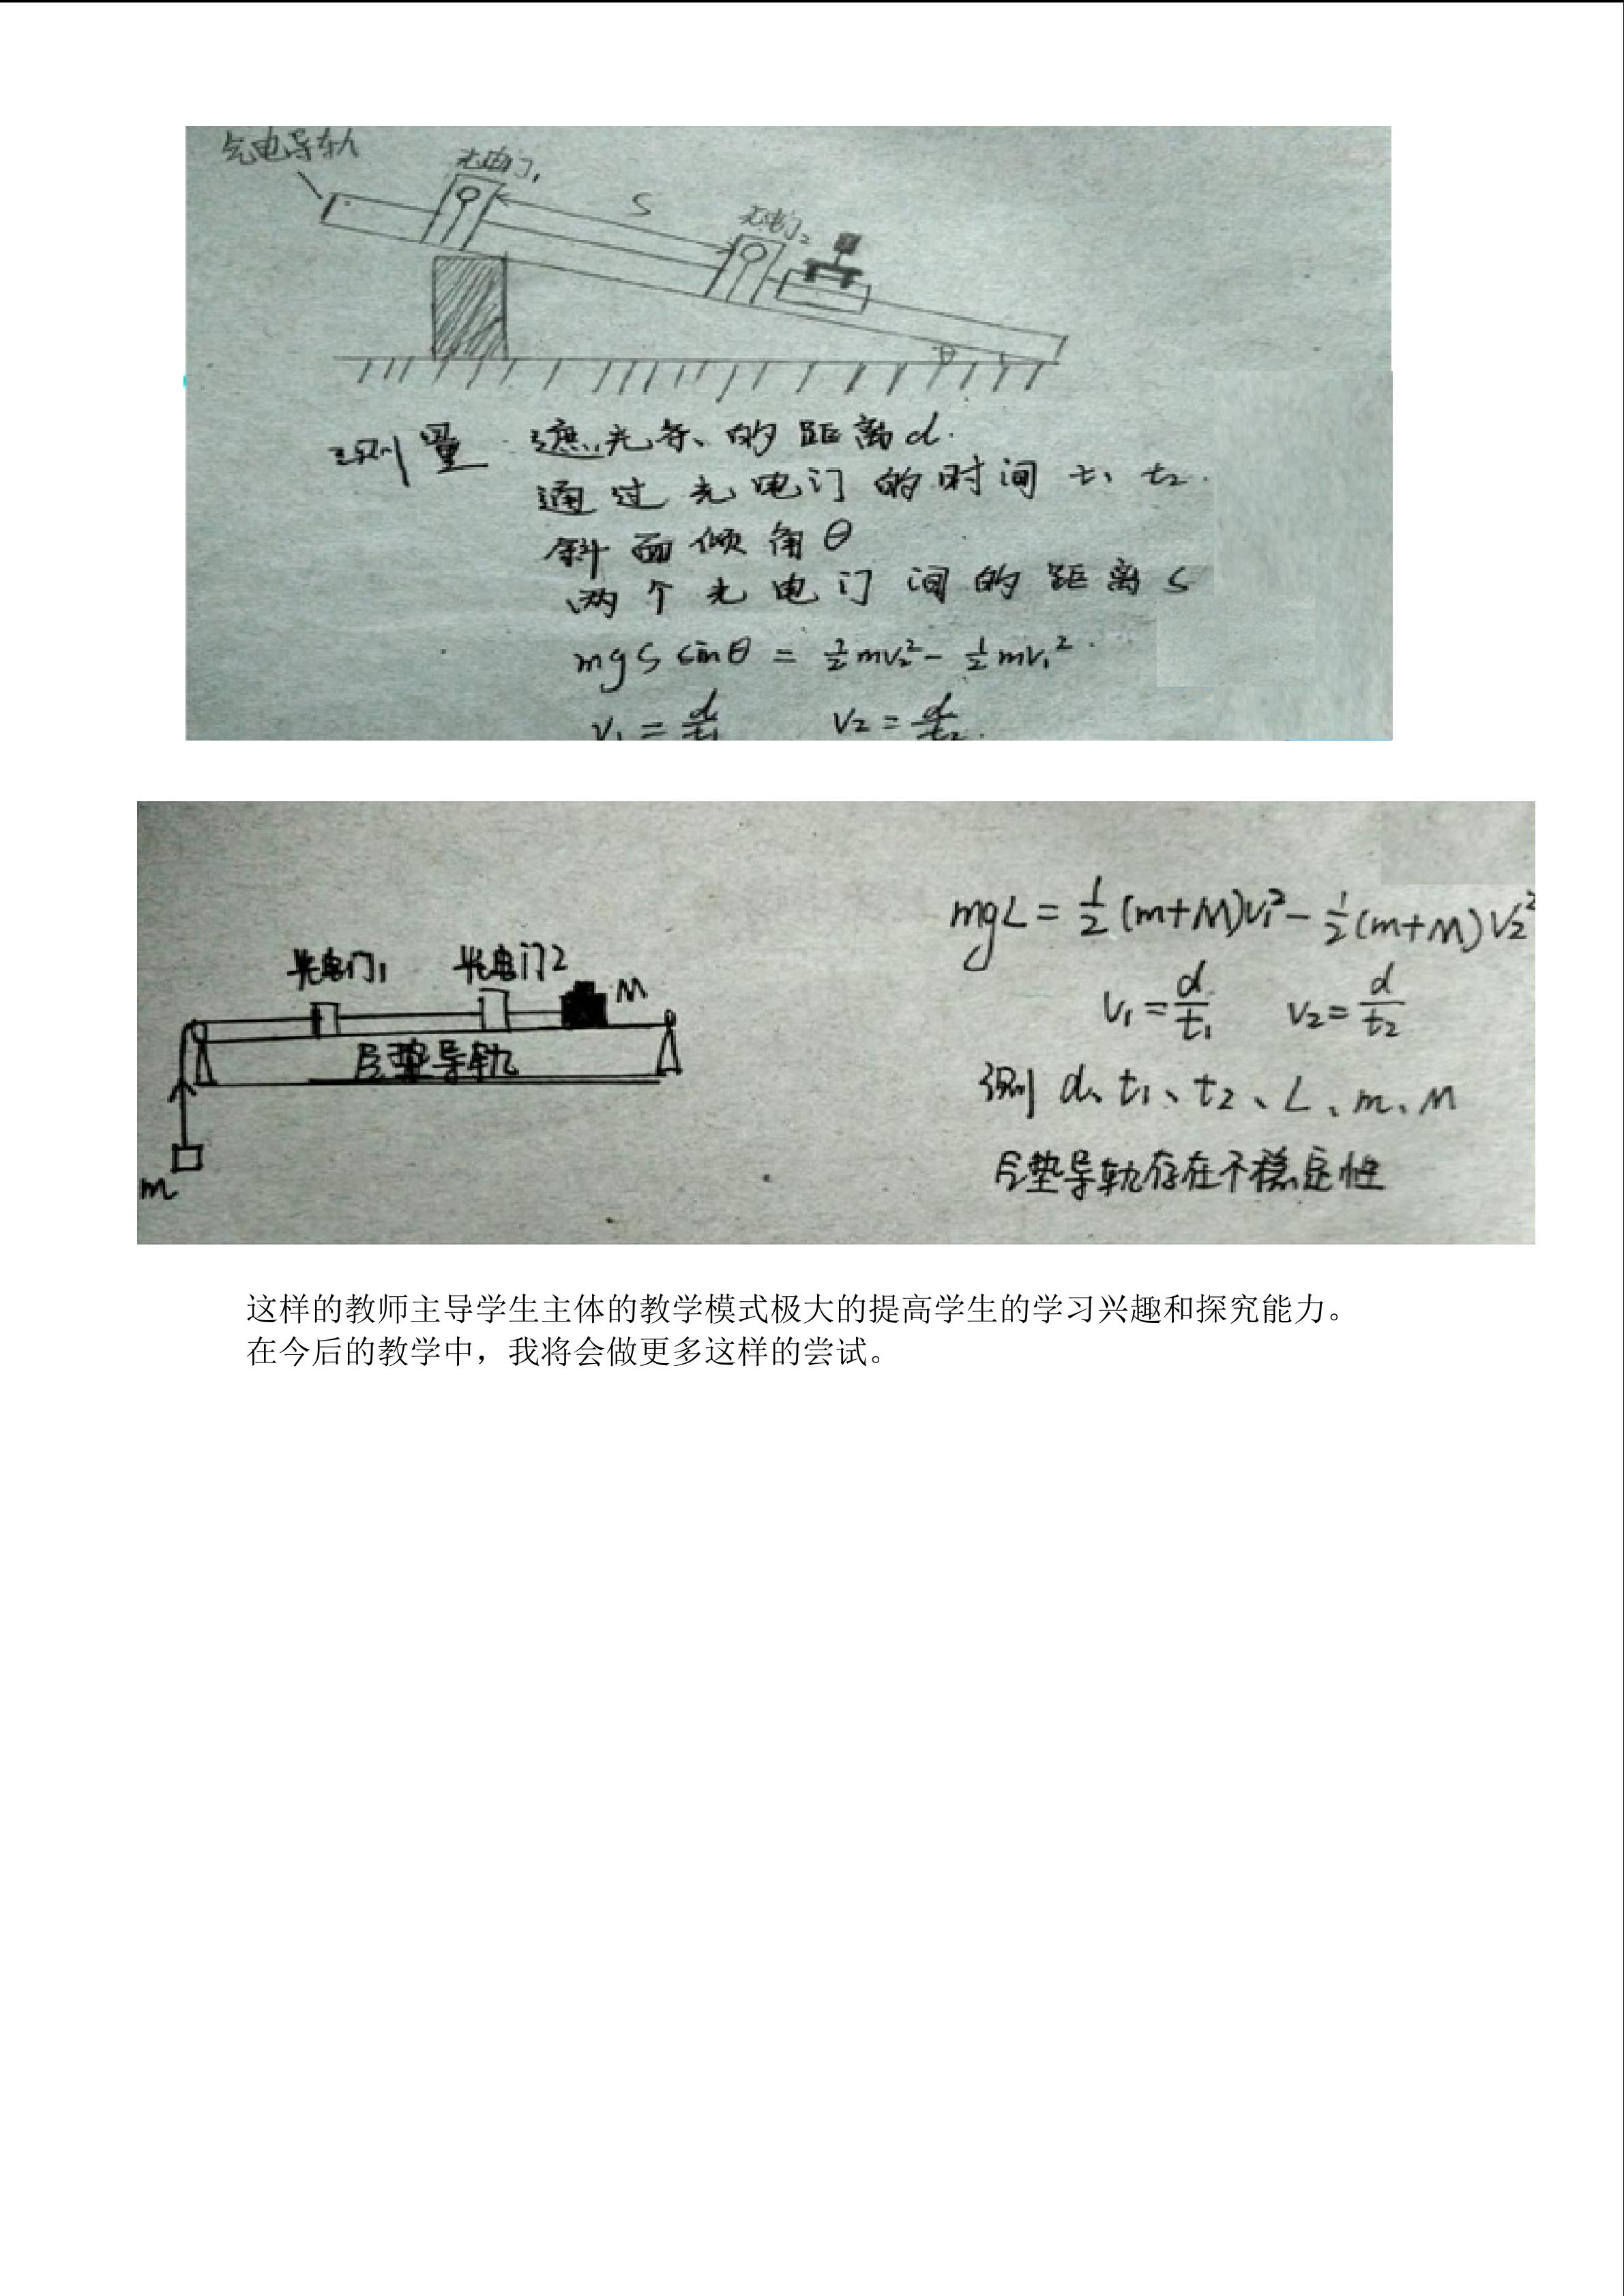 气电导轨
光电门1
S
光电门2
θ
测量 遮光条的距离d.
通过光电门的时间 t1 t2.
斜面倾角θ
两个光电门间的距离S
mgS sinθ = ½mv₂² - ½mv₁².
v₁ = d/t₁ v₂ = d/t₂.
光电门1 光电门2
M
气垫导轨
m
mgL = ½(m+M)v₁² - ½(m+M)v₂²
v₁ = d/t₁ v₂ = d/t₂
测 d、t₁、t₂、L、m、M
气垫导轨存在不稳定性
这样的教师主导学生主体的教学模式极大的提高学生的学习兴趣和探究能力。
在今后的教学中，我将会做更多这样的尝试。